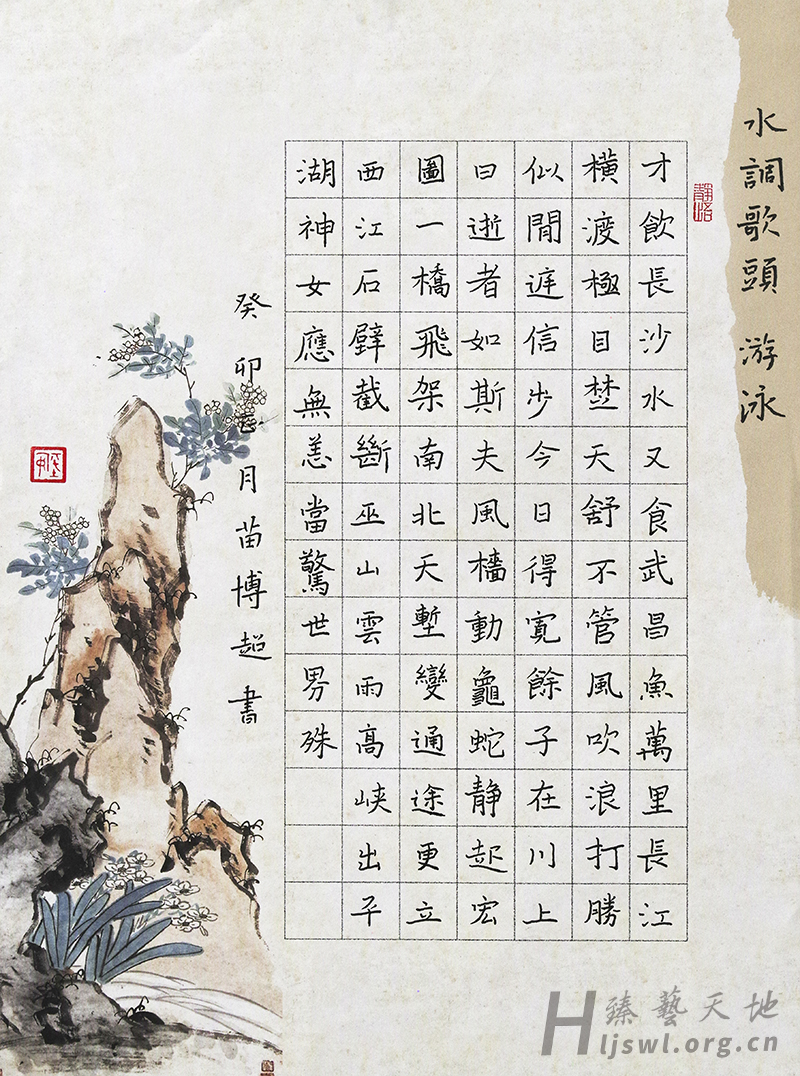 水調歌頭 游泳
才飲長沙水又食武昌魚萬里長江
橫渡極目楚天舒不管風吹浪打勝
似閒庭信步今日得寬餘子在川上
曰逝者如斯夫風檣動龜蛇静起宏
圖一橋飛架南北天塹變通途更立
西江石壁截斷巫山雲雨高峽出平
湖神女應無恙當驚世界殊
癸卯巳月苗博超書
臻藝天地
Hljswl.org.cn